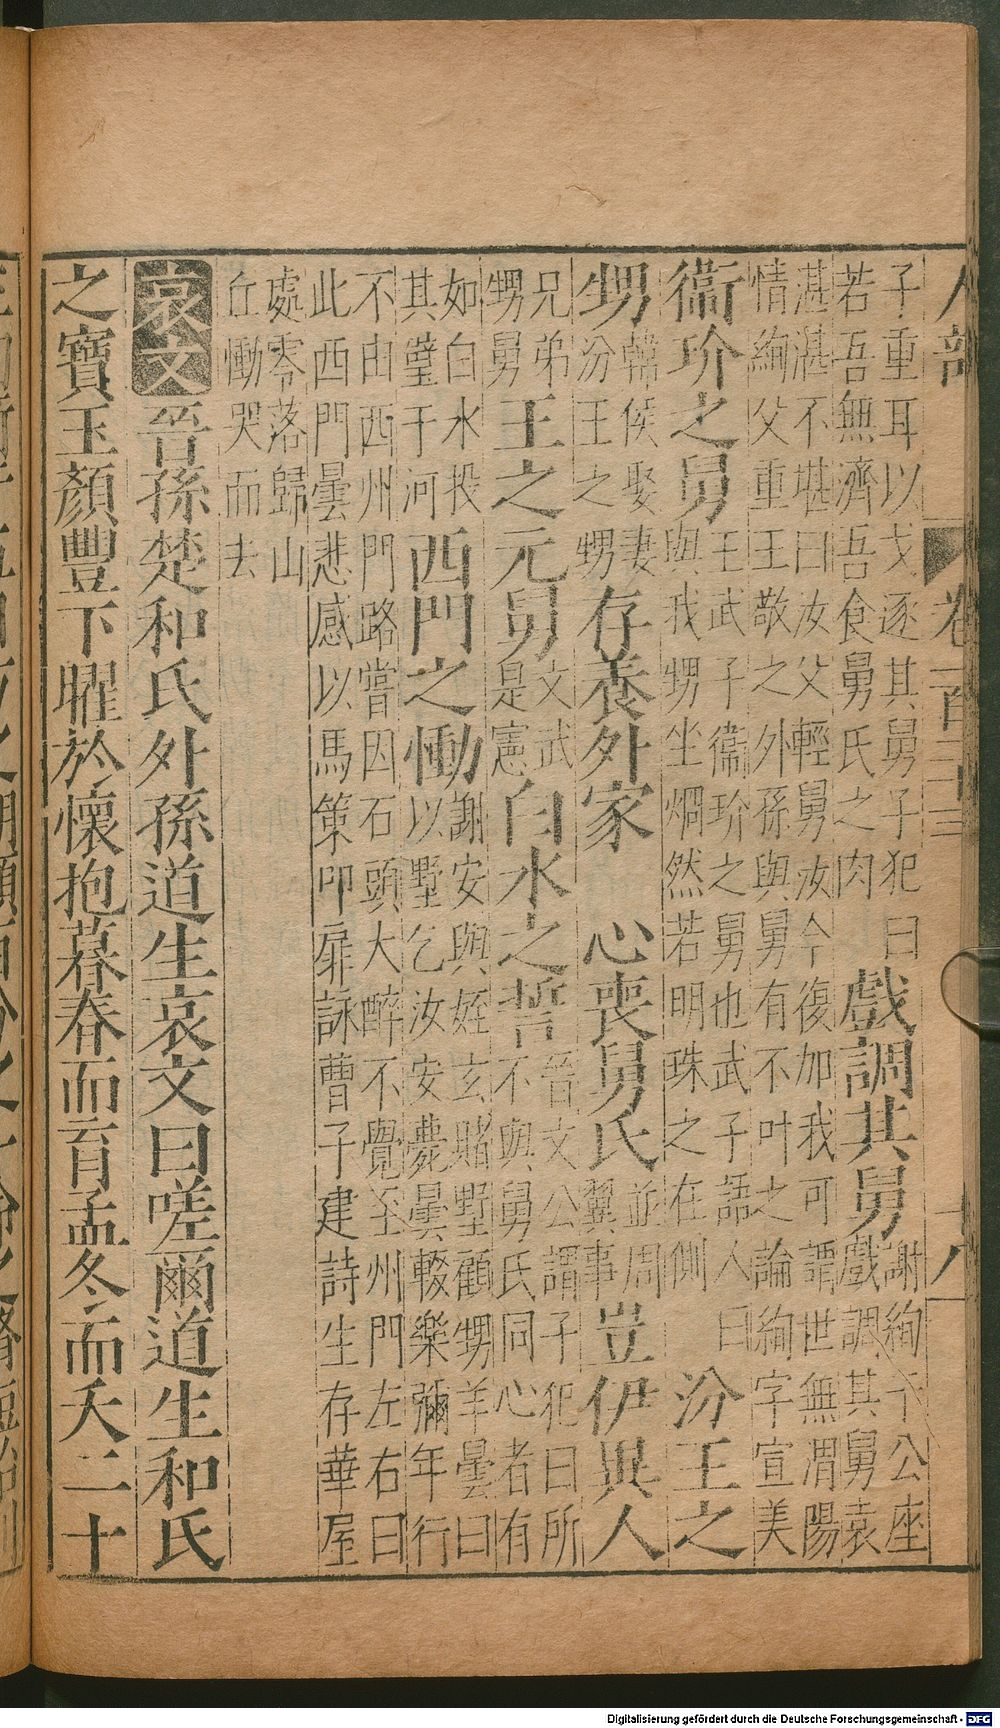 人部　卷一百二十三　十八
子重耳以戈逐其舅子犯曰
若吾無濟吾食舅氏之肉
戲調其舅
謝絢于公座
戲調其舅袁
湛湛不堪曰汝父輕舅汝今復加我可謂世無渭陽
情絢父重王敬之外孫與舅有不叶之論絢字宣美
衞玠之舅
王武子衞玠之舅也武子語人曰
與我甥坐烱然若明珠之在側
汾王之
甥
韓侯娶妻
汾王之甥
存養外家　心喪舅氏
並周
翼事
豈伊異人
兄弟
甥舅
王之元舅
文武
是憲
白水之誓
晉文公謂子犯曰所
不與舅氏同心者有
如白水投
其璧于河
西門之慟
謝安與姪玄賭墅顧甥羊曇曰
以墅乞汝安薨曇輟樂彌年行
不由西州門路嘗因石頭大醉不覺至州門左右曰
此西門曇悲感以馬策叩扉詠曹子建詩生存華屋
處零落歸山
丘慟哭而去
哀文
晉孫楚和氏外孫道生哀文曰嗟爾道生和氏
之寶玉顏豐下曜於懷抱暮春而育孟冬而夭二十
Digitalisierung gefördert durch die Deutsche Forschungsgemeinschaft - DFG